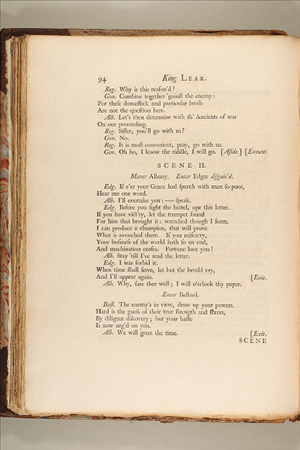 94 King LEAR.
Reg. Why is this reason'd?
Gon. Combine together 'gainst the enemy:
For these domestick and particular broils
Are not the question here.
Alb. Let's then determine with th' Ancients of war
On our proceeding.
Reg. Sister, you'll go with us?
Gon. No.
Reg. It is most convenient, pray, go with us.
Gon. Oh ho, I know the riddle, I will go. [Aside.] [Exeunt.
SCENE II.
Manet Albany. Enter Edgar disguis'd.
Edg. If e'er your Grace had speech with man so poor,
Hear me one word.
Alb. I'll overtake you: — speak.
Edg. Before you fight the battel, ope this letter.
If you have vict'ry, let the trumpet sound
For him that brought it: wretched though I seem,
I can produce a champion, that will prove
What is avouched there. If you miscarry,
Your business of the world hath so an end,
And machination ceases. Fortune love you!
Alb. Stay 'till I've read the letter.
Edg. I was forbid it.
When time shall serve, let but the herald cry,
And I'll appear again. [Exit.
Alb. Why, fare thee well; I will o'erlook thy paper.
Enter Bastard.
Bast. The enemy's in view, draw up your powers.
Hard is the guess of their true strength and forces,
By diligent discovery; but your haste
Is now urg'd on you.
Alb. We will greet the time. [Exit.
SCENE